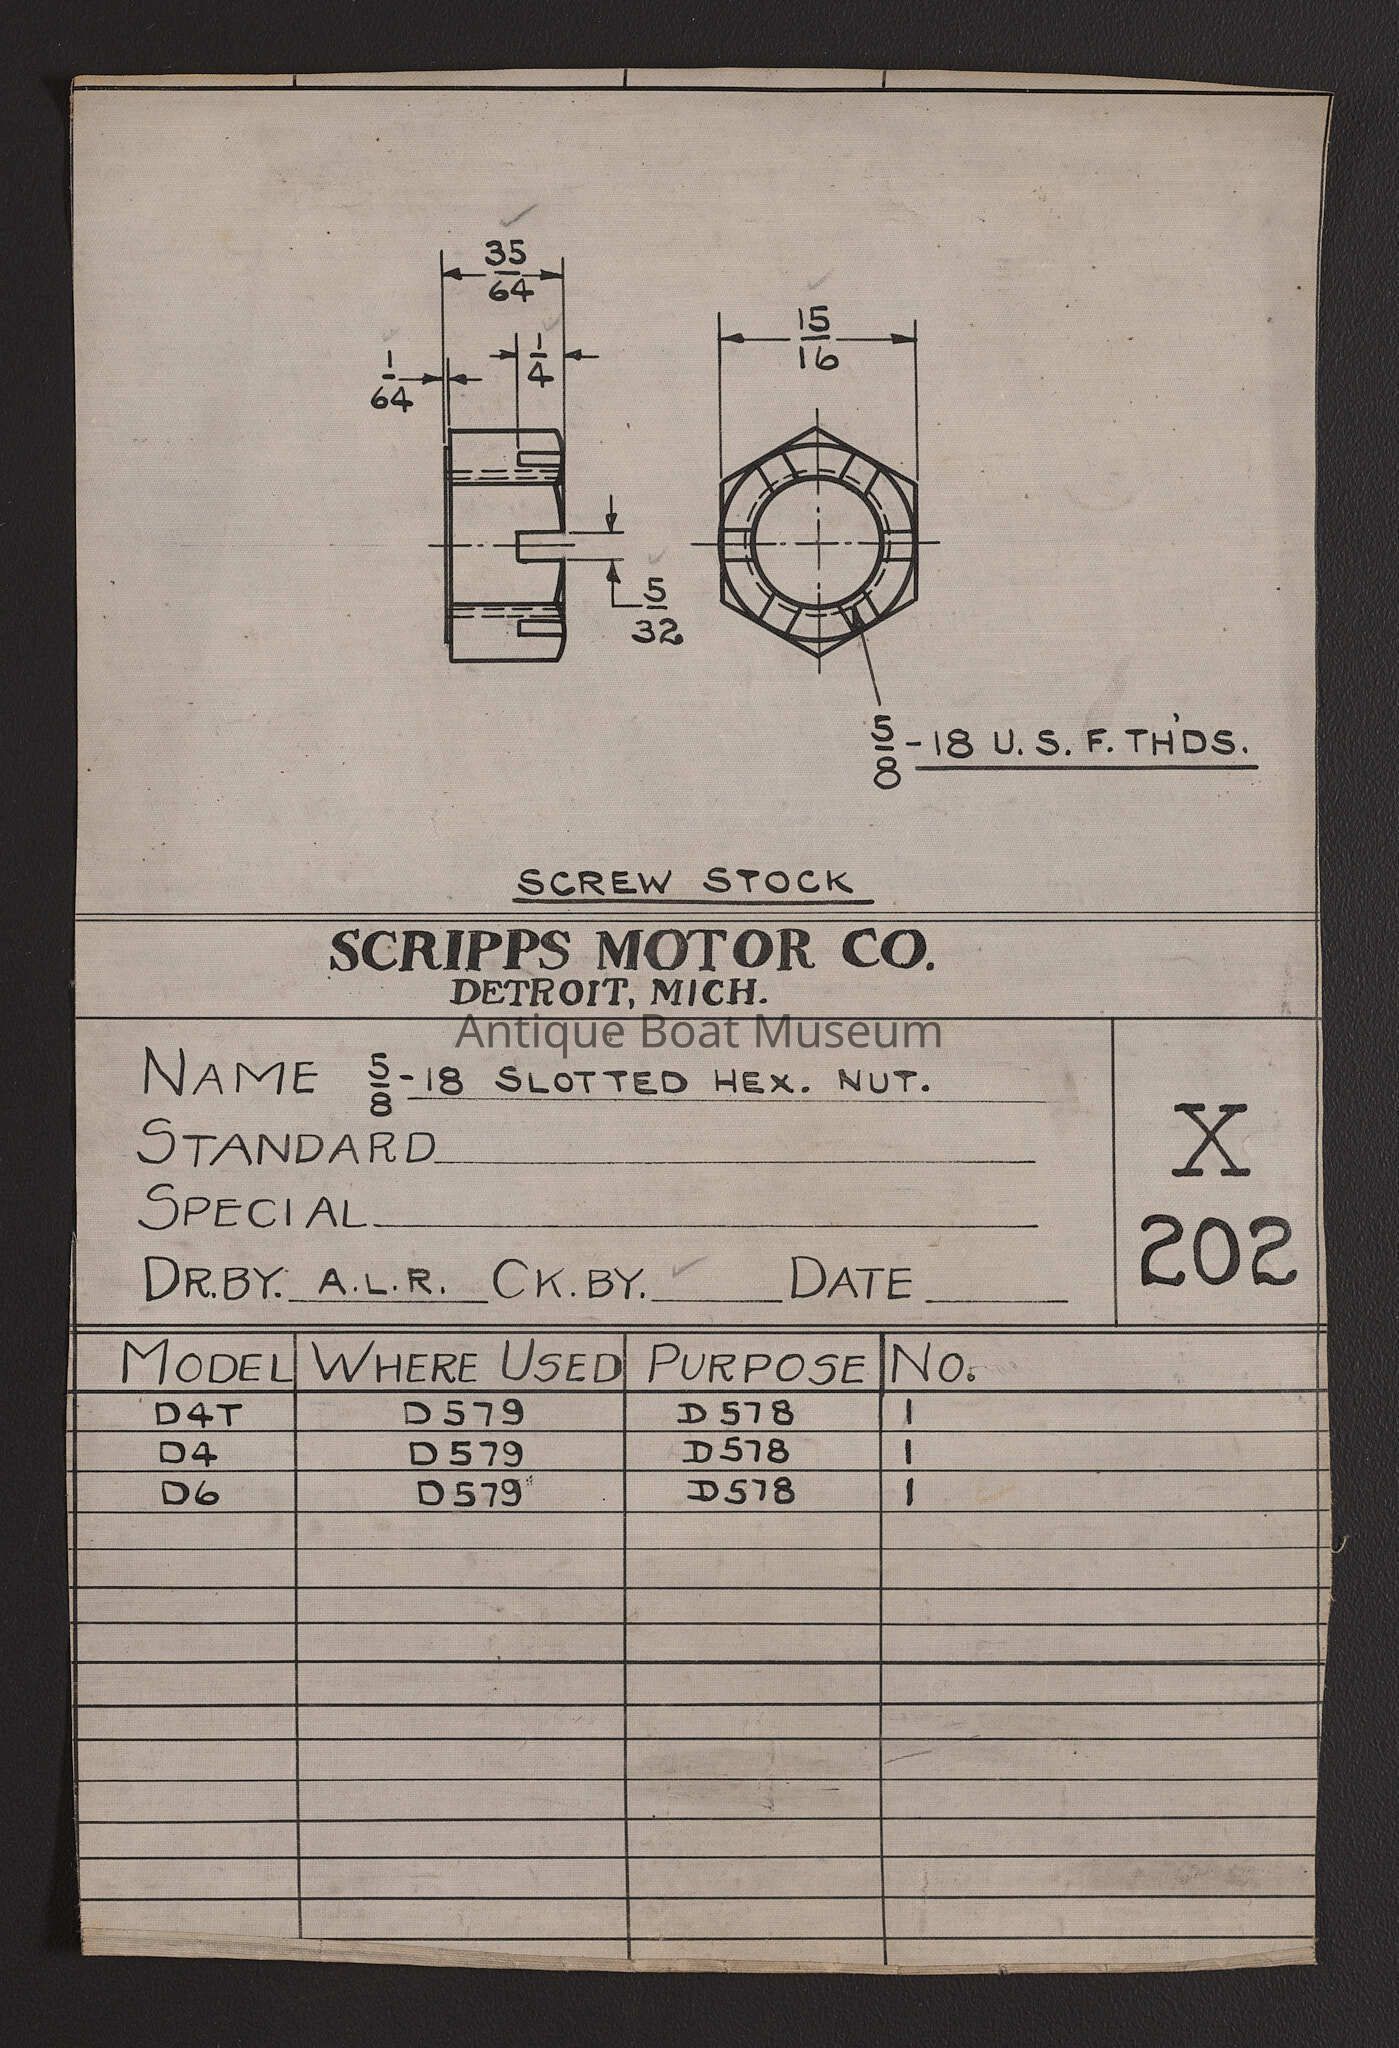 35/64
1/4
1/64
15/16
5/32
5/8-18 U.S.F. TH'DS.
SCREW STOCK
SCRIPPS MOTOR CO.
DETROIT, MICH.
Antique Boat Museum
NAME 5/8-18 SLOTTED HEX. NUT.
STANDARD
SPECIAL
X
202
DR.BY. A.L.R. CK.BY. DATE
MODEL WHERE USED PURPOSE NO.
D4T D579 D578 1
D4 D579 D578 1
D6 D579 D578 1